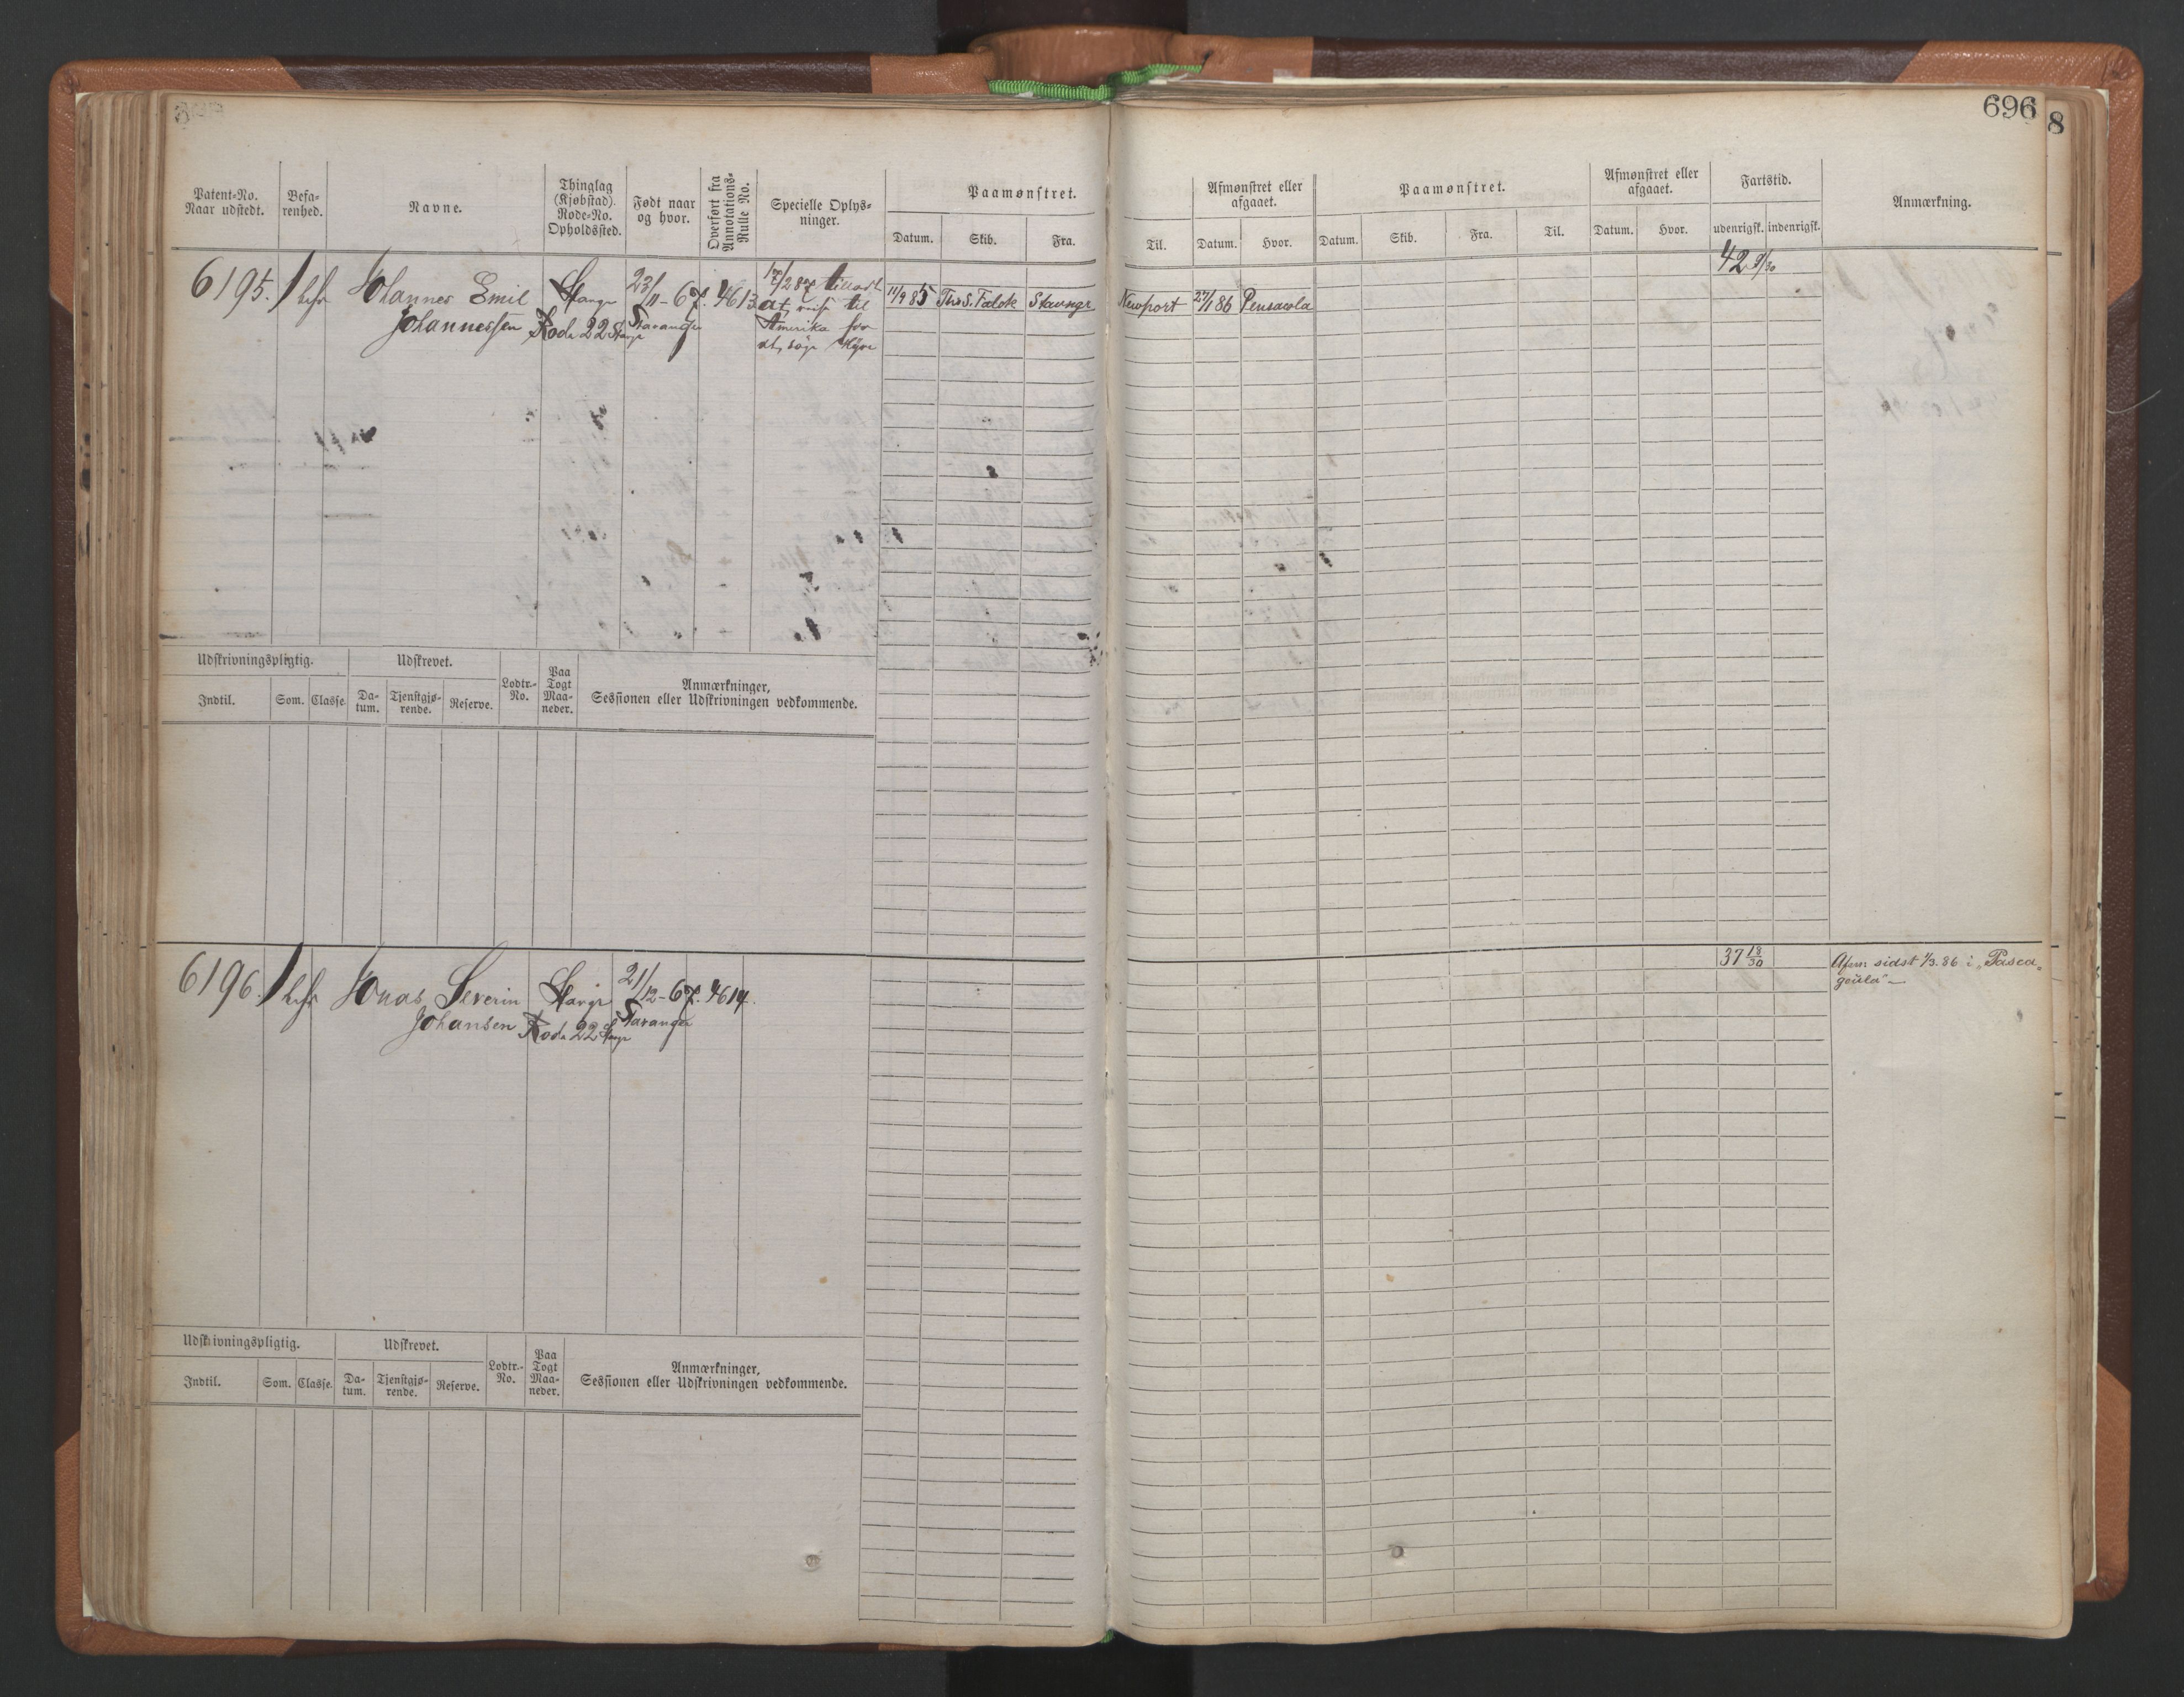 696
8
Patent-No. Naar udstedt.
Befa-renhed.
Navne.
Thinglag (Kjøbstad). Rode-No. Opholdssted.
Født naar og hvor.
Overført fra Annotations-Rulle No.
Specielle Oplys-ninger.
Paamønstret.
Datum. Skib. Fra.
Til.
Afmønstret eller afgaaet.
Datum. Hvor.
Paamønstret.
Datum. Skib. Fra. Til.
Afmønstret eller afgaaet.
Datum. Hvor.
Fartstid.
udenrigsk. indenrigsk.
Anmærkning.
6195. Johannes Emil
Johannessen
Stavgr
Rode 22 Stavgr
23/11-67.
Stavanger
4613
17/2 87 tilladt
at reise til
Amerika for
at søge Hyre
11/9 85 Ths. S. Falck Stavngr
Newport 27/1 86 Pensacola
42 9/30
Udskrivningspligtig.
Indtil. Som. Classe.
Udskrevet.
Da-tum. Tjenstgjø-rende. Reserve.
Lodtr.-No.
Paa Togt Maa-neder.
Anmærkninger,
Sessionen eller Udskrivningen vedkommende.
6196. Jonas Severin
Johansen
Stavgr
Rode 22 Stavgr
21/12-67.
Stavanger
4614.
37 18/30
Afm sidst 1/3.86 i „Pasca-
goula"
Udskrivningspligtig.
Indtil. Som. Classe.
Udskrevet.
Da-tum. Tjenstgjø-rende. Reserve.
Lodtr.-No.
Paa Togt Maa-neder.
Anmærkninger,
Sessionen eller Udskrivningen vedkommende.